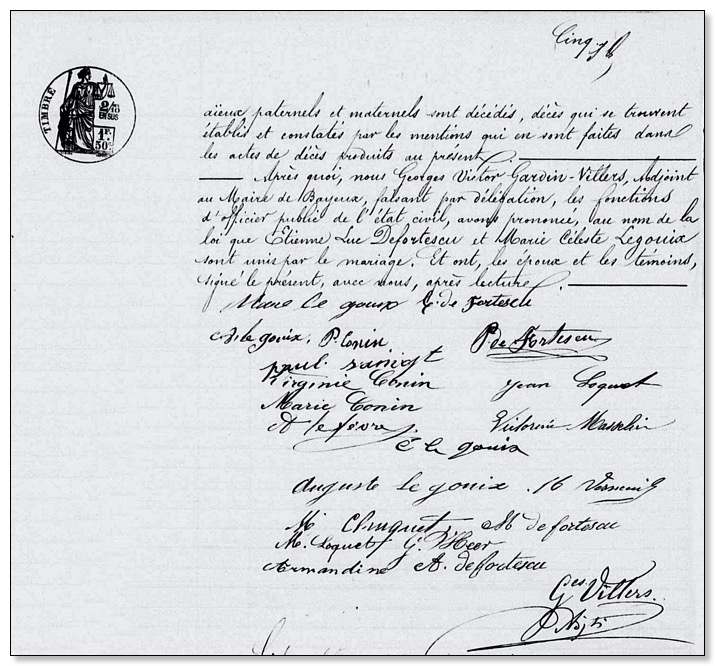 Cinq
TIMBRE
2/10
EN SUS
1F.
50c
aïeux paternels et maternels sont décédés, décès qui se trouvent
établis et constatés par les mentions qui en sont faites dans
les actes de décès produits au présent.
Après quoi, nous Georges Victor Gardin-Villers, Adjoint
au Maire de Bayeux, faisant par délégation, les fonctions
d'officier public de l'état civil, avons prononcé, au nom de la
loi que Etienne Luc Defortescu et Marie Céleste Legouix
sont unis par le mariage. Et ont, les époux et les témoins,
signé le présent, avec nous, après lecture.
Marie le gouix E. de Fortescu
le gouix, P. Conin P. de Fortescu
paul
Virginie Conin Jean Loquet
Marie Conin
A lefèvre Victorine
C le gouix
Auguste le gouix
M Chuquet, M defortescu
M. Loquet G.
Armandine A. defortescu
Ges Villers
Adjt